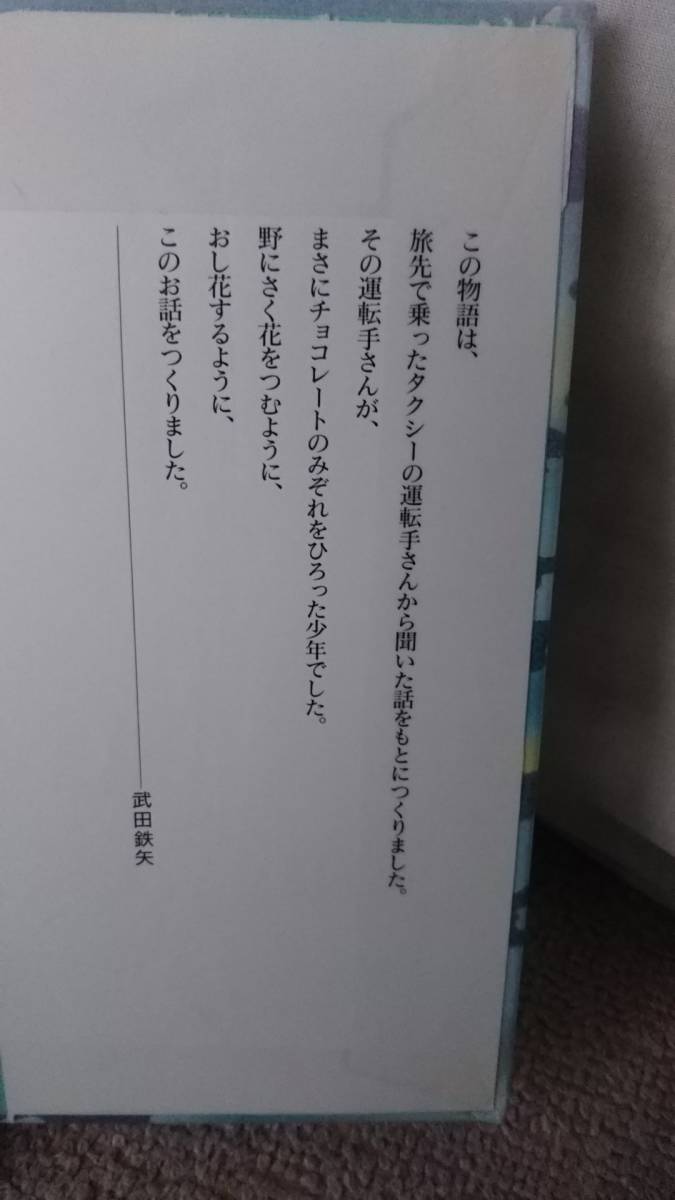 この物語は、
旅先で乗ったタクシーの運転手さんから聞いた話をもとにつくりました。
その運転手さんが、
まさにチョコレートのみぞれをひろった少年でした。
野にさく花をつむように、
おし花するように、
このお話をつくりました。
——武田鉄矢